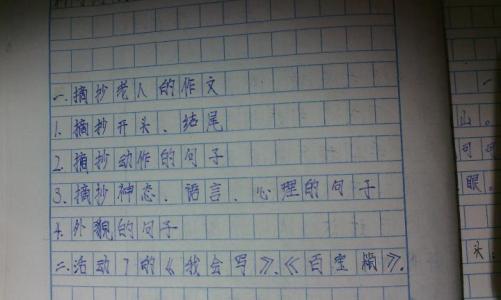 一.摘抄老人的作文
1.摘抄开头、结尾
2.摘抄动作的句子
3.摘抄神态、语言、心理的句子
4.外貌的句子
二.活动7的《我会写》.《百宝箱》.
山。
可可
眼。
头